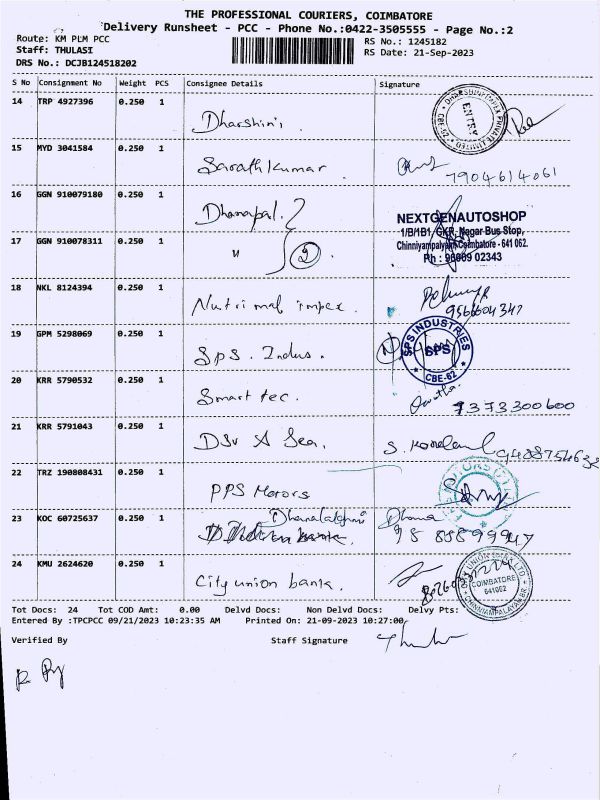 THE PROFESSIONAL COURIERS, COIMBATORE
Delivery Runsheet - PCC - Phone No.:0422-3505555 - Page No.:2
Route: KM PLM PCC
RS No.: 1245182
Staff: THULASI
RS Date: 21-Sep-2023
DRS No.: DCJB124518202
S No Consignment No Weight PCS Consignee Details Signature
14 TRP 4927396 0.250 1 Dharshini
ENTRY
15 MYD 3041584 0.250 1 Sarathkumar 7904614061
16 GGN 910079180 0.250 1 Dhanapal.
NEXTGENAUTOSHOP
1/B/1B1, GKR, Nagar Bus Stop,
Chinniyampalayam, Coimbatore - 641 062.
Ph : 96009 02343
17 GGN 910078311 0.250 1 " 2
18 NKL 8124394 0.250 1 Nutrimal impex. 9566604347
19 GPM 5298069 0.250 1 Sps. Indus.
SPS INDUSTRIES
SPS
CBE-62
20 KRR 5790532 0.250 1 Smart tec. 7373300600
21 KRR 5791043 0.250 1 DSV A Sea. 9488754632
22 TRZ 190808431 0.250 1 PPS Motors
23 KOC 60725637 0.250 1 Dhanalakshmi Dhana
bank. 98 85899947
24 KMU 2624620 0.250 1 City union bank.
COIMBATORE
641062
Tot Docs: 24 Tot COD Amt: 0.00 Delvd Docs: Non Delvd Docs: Delvy Pts:
Entered By :TPCPCC 09/21/2023 10:23:35 AM Printed On: 21-09-2023 10:27:00
Verified By Staff Signature